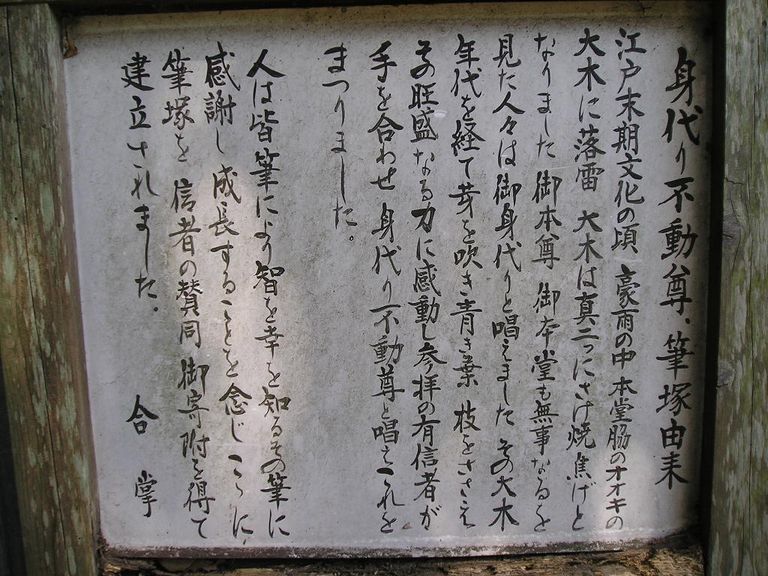 身代り不動尊、筆塚由来
江戸末期文化の頃 豪雨の中 本堂脇のオオキの
大木に落雷 大木は真二つにさけ焼焦げと
なりました 御本尊 御本堂も無事なるを
見た人々は御身代りと唱えました その大木
年代を経て芽を吹き青き葉 枝をささえ
その旺盛なる力に感動し参拝の有信者が
手を合わせ 身代り不動尊と唱えこれを
まつりました。
人は皆筆により智を幸を知るその筆に
感謝し成長することを念じここに、
筆塚を 信者の賛同 御寄附を得て
建立されました。 合掌